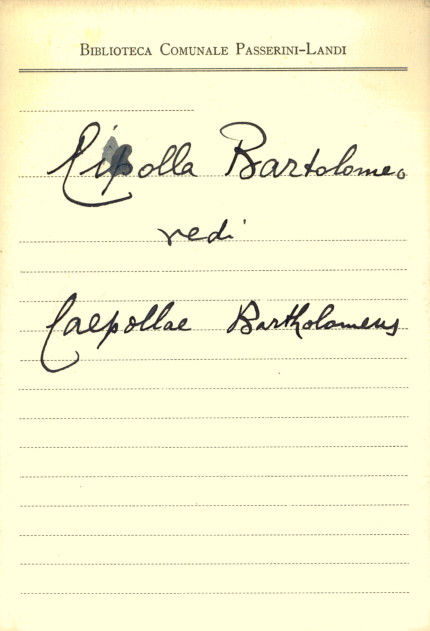 Biblioteca Comunale Passerini-Landi
Cipolla Bartolomeo
vedi
Caepollae Bartholomeus